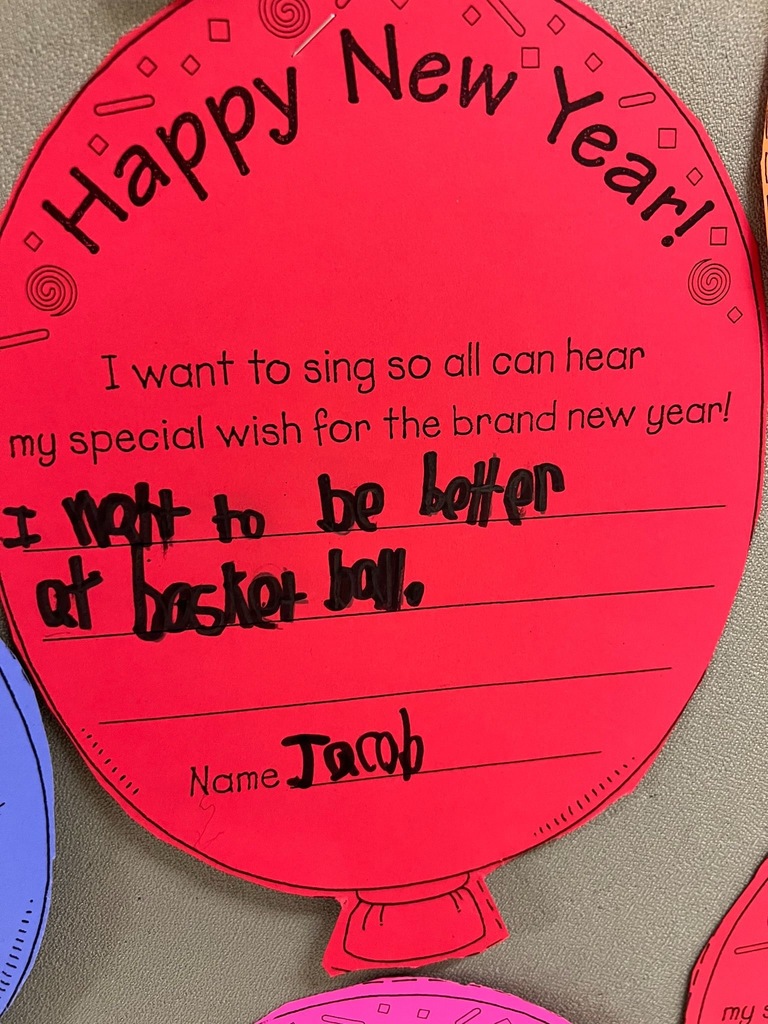 Happy New Year!
I want to sing so all can hear
my special wish for the brand new year!
I wantt to be better
at basket ball.
Name Jacob
my s